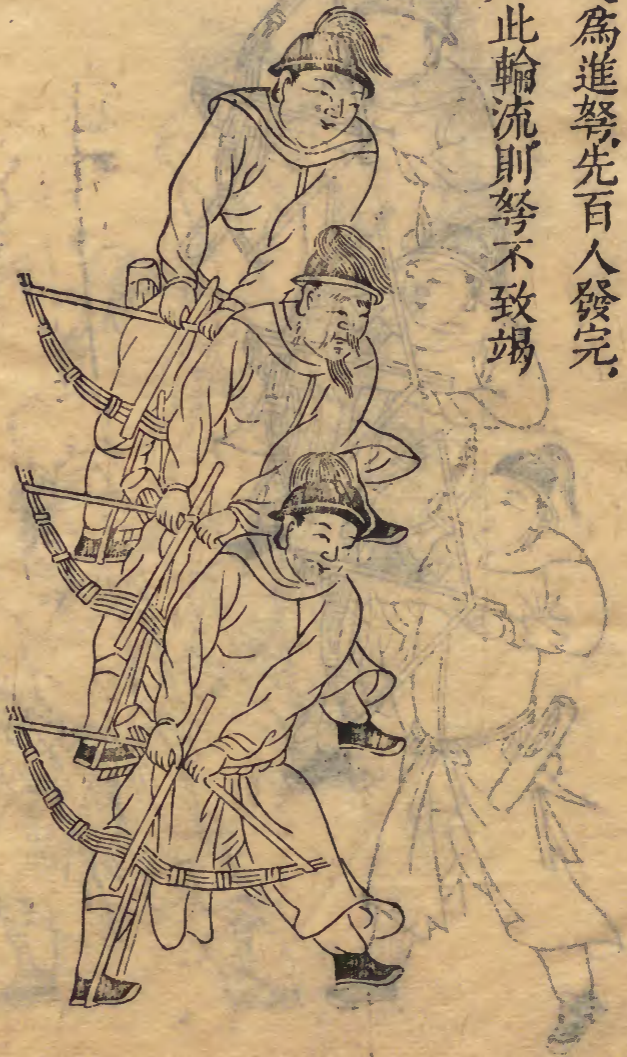 為進弩先百人發完
此輪流則弩不致竭